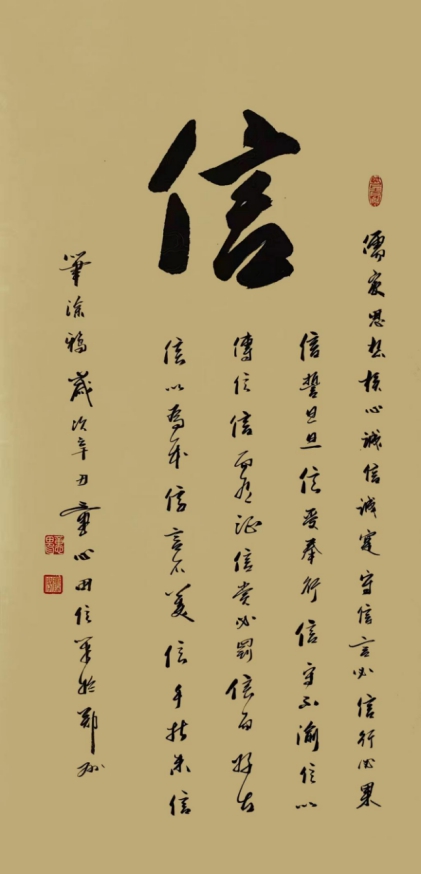 信
儒家思想核心誠信誠寔守信言必信行必果
信誓旦旦信受奉行信守不渝信以
傳信信而有证信赏必罰信而好古
信以為本信言不美信手拈来信
筆涂鴉歲次辛丑童心田信筆於鄭州